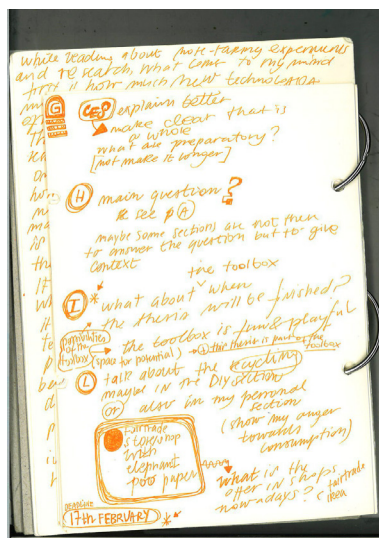 while reading about note-taking experiments
and research, what comes to my mind
first is how much new technology
G
explain better
make clear that is
a whole
what are preparatory?
[not make it longer]
H main question?
& see p A
maybe some sections are not then
to answer the question but to give
context
the toolbox
I what about when
the thesis will be finished?
possibilities
of the
toolbox
the toolbox is fun & playful
(space for potential) → + this thesis is part of the
toolbox
L talk about the recycling
maybe in the DIY section
or also in my personal
section
(show my anger
towards
consumption)
fairtrade
stoneshop
with
elephant
poo paper
what is the
offer in shops
nowadays? (fairtrade
ikea
DEADLINE
17TH FEBRUARY